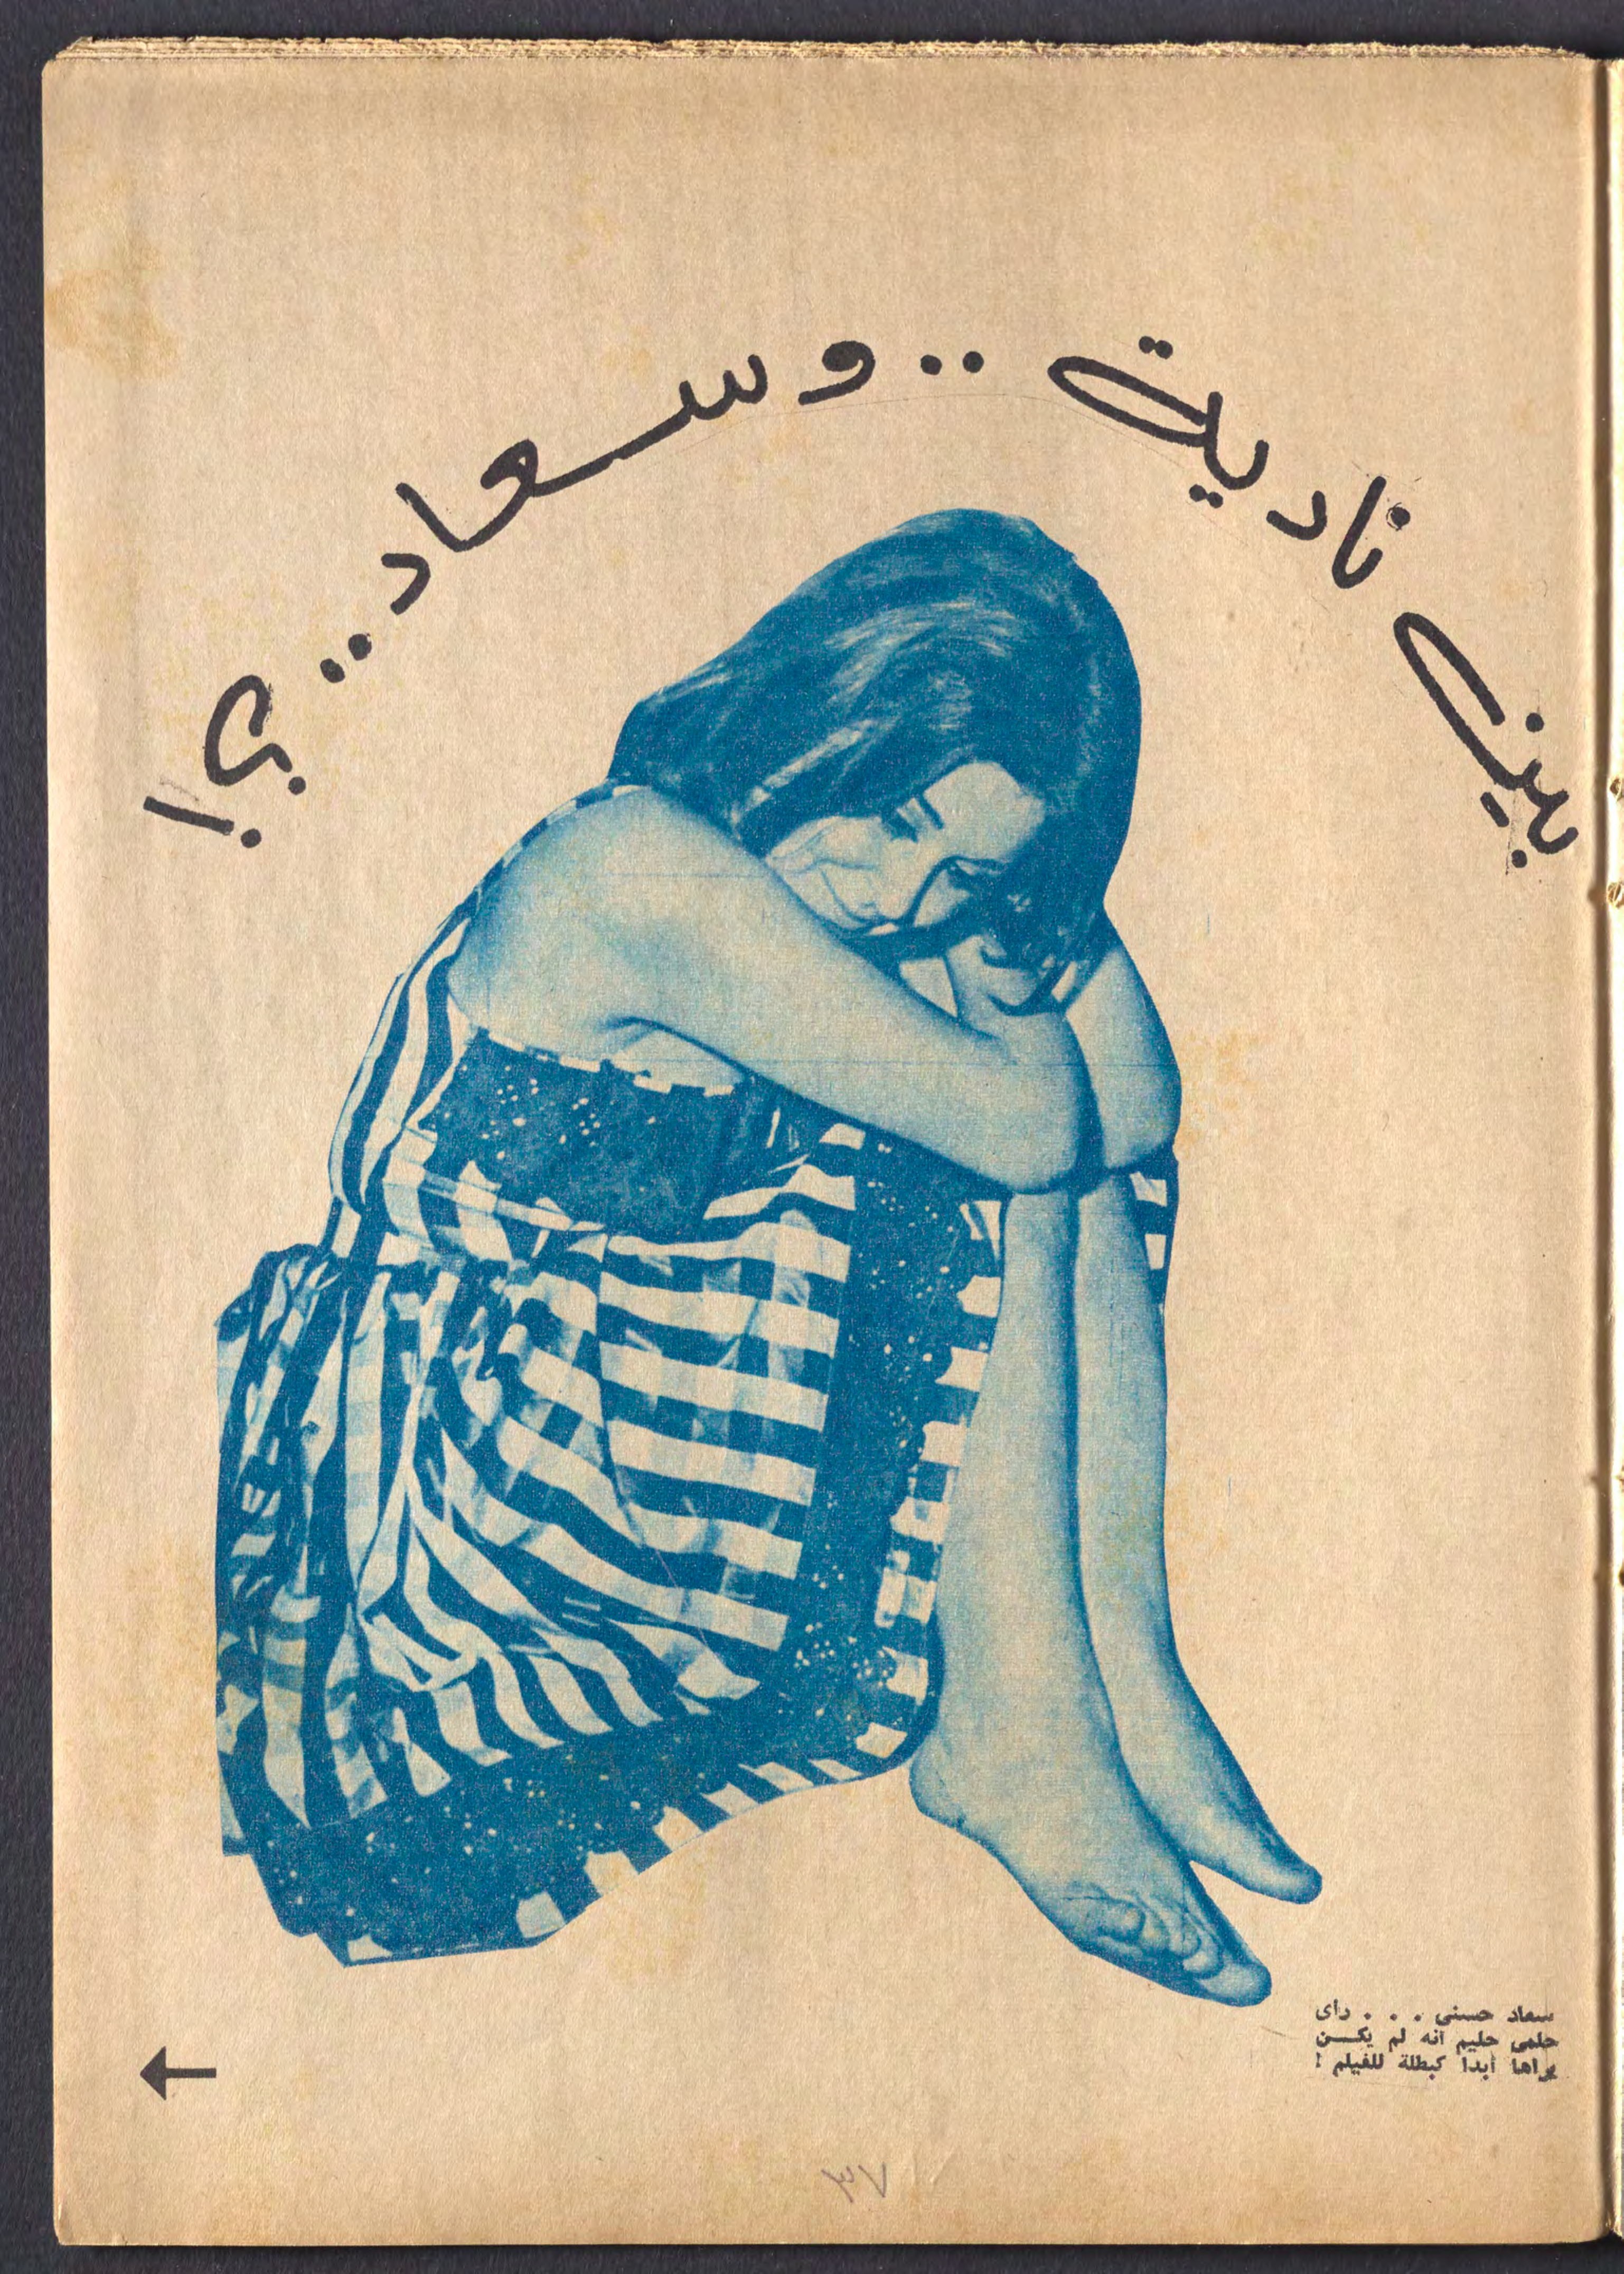 بين نادية .. وسعاد .. ؟!
سعاد حسنى . . . رأى
حلمى حليم انه لم يكن
يراها أبدا كبطلة للفيلم !
٣٧